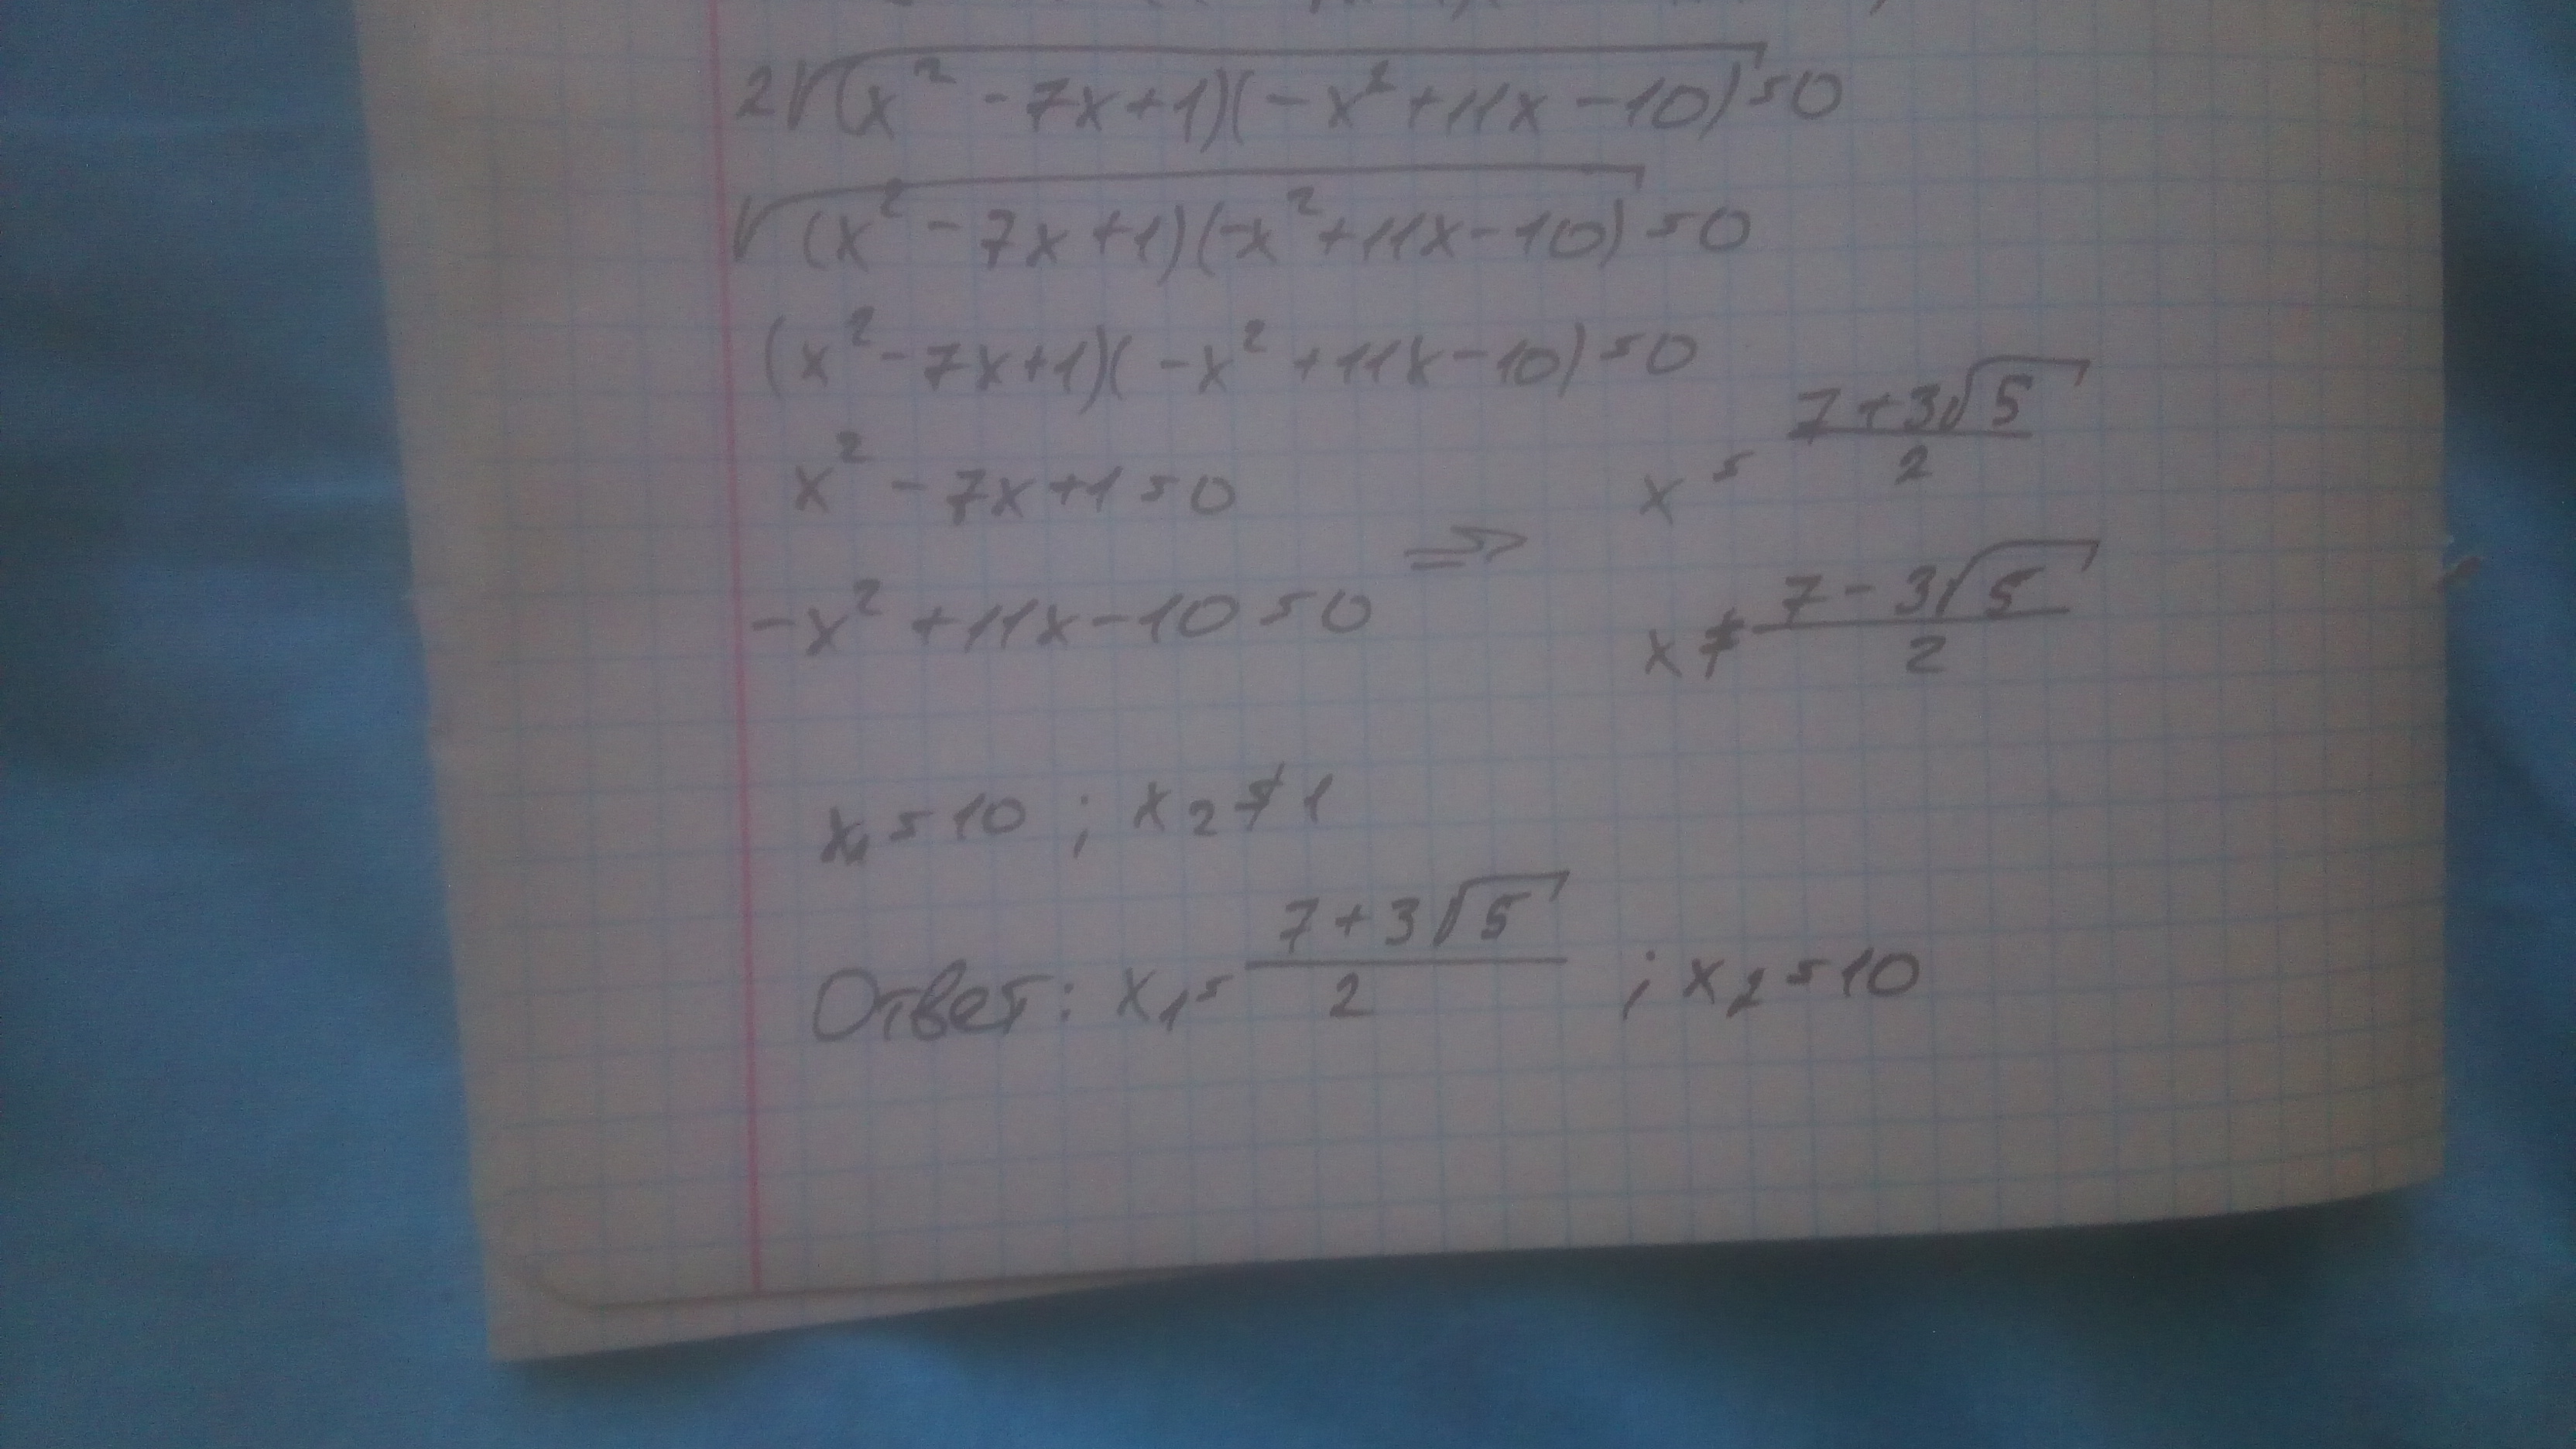 2√(x² - 7x + 1)(-x² + 11x - 10) = 0
√(x² - 7x + 1)(-x² + 11x - 10) = 0
(x² - 7x + 1)(-x² + 11x - 10) = 0
x² - 7x + 1 = 0
x = (7 + 3√5)/2
-x² + 11x - 10 = 0 ⇒
x ≠ (7 - 3√5)/2
x₁ = 10 ; x₂ ≠ 1
Ответ: x₁ = (7 + 3√5)/2 ; x₂ = 10